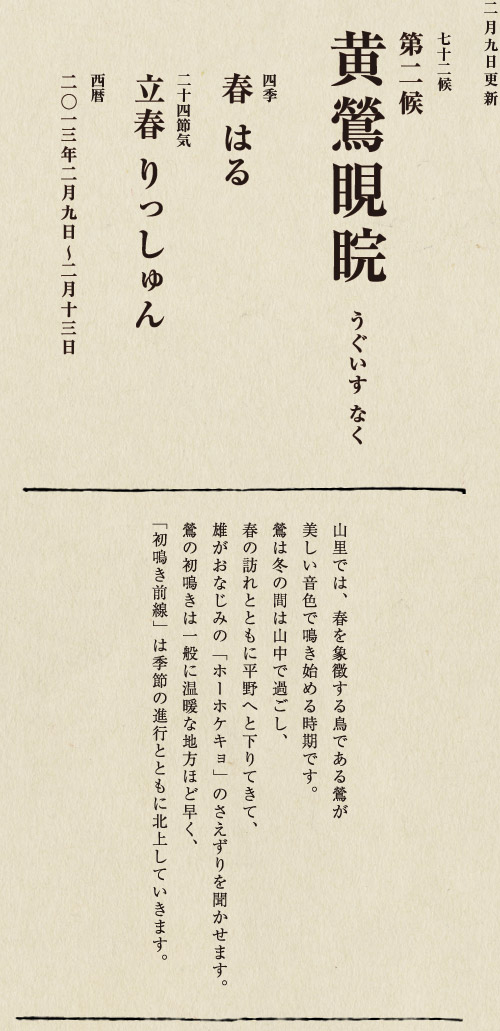 二月九日更新
七十二候
第二候
黄鶯睍睆 うぐいす なく
四季
春 はる
二十四節気
立春 りっしゅん
西暦
二〇一三年二月九日～二月十三日
山里では、春を象徴する鳥である鶯が
美しい音色で鳴き始める時期です。
鶯は冬の間は山中で過ごし、
春の訪れとともに平野へと下りてきて、
雄がおなじみの「ホーホケキョ」のさえずりを聞かせます。
鶯の初鳴きは一般に温暖な地方ほど早く、
「初鳴き前線」は季節の進行とともに北上していきます。